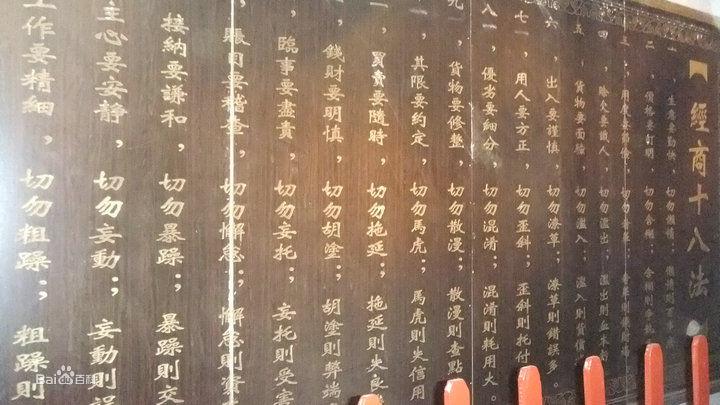 經商十八法
一、生意要勤快，切勿懶惰；懶惰則百事
二、價格要訂明，切勿含糊；含糊則爭執
三、用度要節儉，切勿奢華；奢華則錢財竭
四、賒欠要識人，切勿濫出；濫出則血本虧
五、貨物要面驗，切勿濫入；濫入則貨價
六、出入要謹慎，切勿潦草；潦草則錯誤多。
七、用人要方正，切勿歪斜；歪斜則托付
八、優劣要細分，切勿混淆；混淆則耗用大。
九、貨物要修整，切勿散漫；散漫則查點
其限要約定，切勿馬虎，馬虎則失信用
一，買賣要隨時，切勿拖延；拖延則失良
，錢財要明慎，切勿胡塗；胡塗則弊端
，臨事要盡責，切勿妄托；妄托則受害
，賬目要稽查，切勿懈怠；懈怠則資
接納要謙和，切勿暴躁；暴躁則交
主心要安靜，切勿妄動；妄動則誤
工作要精細，切勿粗躁；粗躁則
Baidu百科